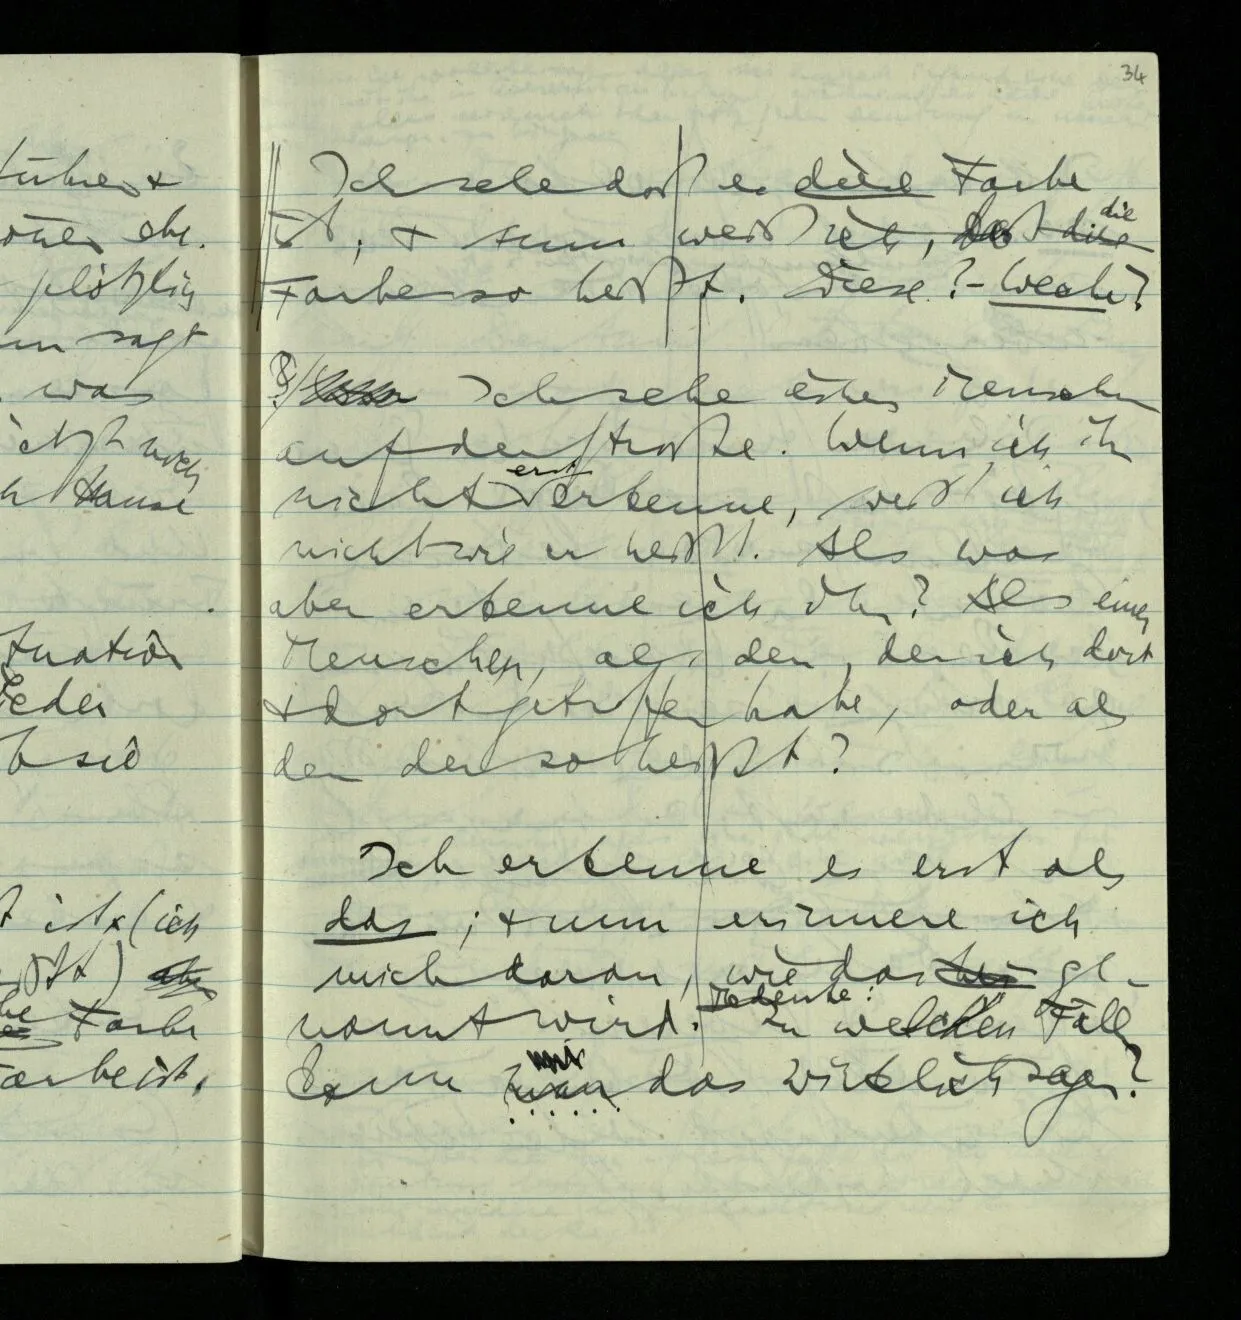 34
plötzlich
sagt
was
noch
Hause
Jeder
sie
ist, (ich
Farbe
Farbe ist.
Ich sehe daß es diese Farbe
ist, & nun weiß ich, daß diese die
Farbe so heißt. Diese? – Welche?
Ich sehe einen Menschen
auf der Straße. Wenn ich ihn
nicht erst erkenne, weiß ich
nicht wie er heißt. Als was
aber erkenne ich ihn? Als einen
Menschen, als den, den ich dort
& dort getroffen habe, oder als
den der so heißt?
Ich erkenne es erst als
das; & nun erinnere ich
mich daran, wie das ge-
nannt wird. Bedenke: In welchen Fällen
kann man das wirklich sagen?